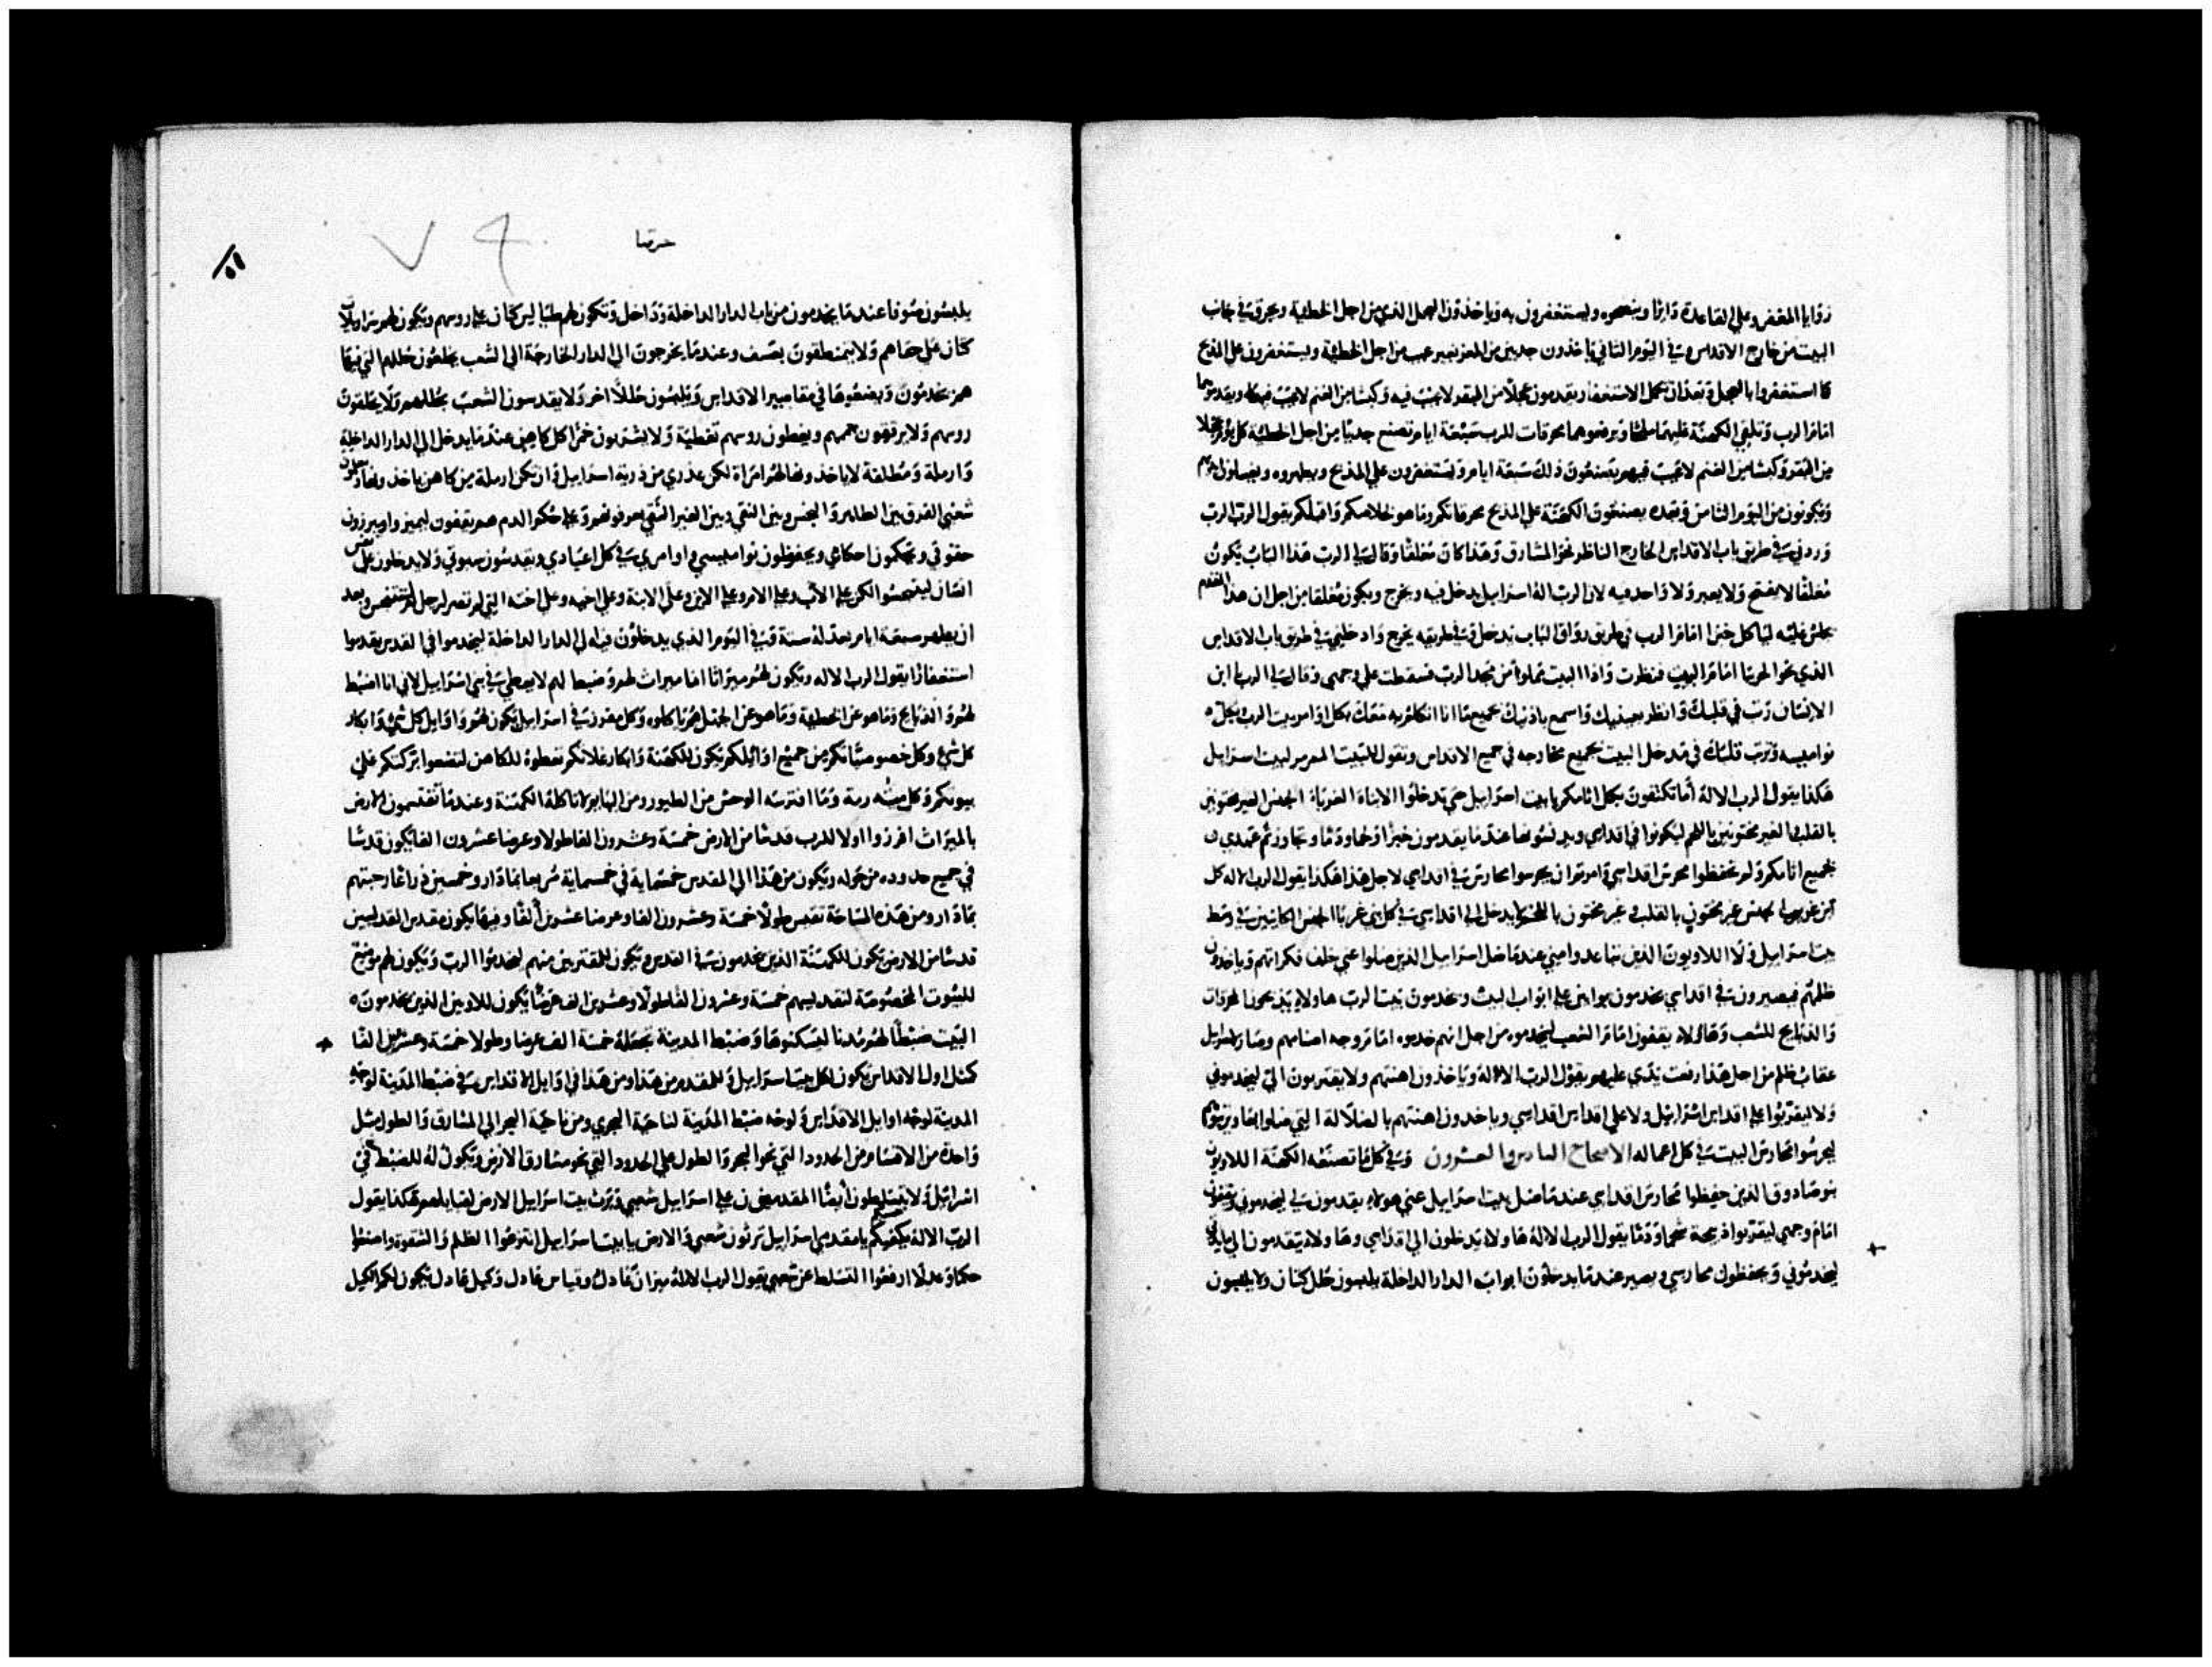 زوايا المغفر وعلي القاعدة دايرا وينضحوه ويستغفرون به وياخذون العجل الذي من اجل الخطية ويحرق في جانب
البيت من خارج الاقداس وفي اليوم الثاني ياخذون جديين من المعز بغير عيب من اجل الخطية ويستغفرون علي المذبح
كما استغفروا بالعجل وبعد ان تكمل الاستغفار يقدمون عجلا من البقر لا عيب فيه وكبشا من الغنم لا عيب فيه ويقدموهما
امام الرب وتلقي الكهنة عليهما ملحا ويرفعوهما محرقات للرب سبعة ايام تصنع جديا من اجل الخطية كل يوم وعجلا
من البقر وكبشا من الغنم لا عيب فيهم يصنعون ذلك سبعة ايام ويستغفرون علي المذبح ويطهروه ويغسلون
ويكونون من اليوم الثامن وبعده يصنعون الكهنة علي المذبح محرقاتكم وما هو لخلاصكم واقبلكم يقول الرب الرب
وردني في طريق باب الاقداس الخارج الناظر نحو المشارق وهذا كان مغلقا وقال لي الرب هذا الباب يكون
مغلقا لا يفتح ولا يعبر ولا واحد فيه لان الرب اله اسراييل يدخل فيه ويخرج ويكون مغلقا من اجل ان هذا المقدم
يجلس عليه لياكل خبزا امام الرب في طريق رواق الباب يدخل وفي طريقه يخرج وادخلني في طريق باب الاقداس
الذي نحو الجربيا امام البيت فنظرت واذا البيت مملوا من مجد الرب فسقطت علي وجهي وقال لي الرب يا ابن
الانسان رتب في قلبك وانظر بعينيك واسمع باذنيك جميع ما انا اتكلم به معك بكل اوامر بيت الرب بكل
نواميسه ورتب قلبك في مدخل البيت بجميع مخارجه في جميع الاقداس وتقول للبيت المرمر لبيت اسراييل
هكذا يقول الرب الاله اما تكتفون بكل اثامكم يا بيت اسراييل حتي تدخلوا الابناء الغرباء الجنس الغير مختونين
بالقلب الغير مختونين باللحم ليكونوا في اقداسي ويدنسونها عندما يقدمون خبزا ولحما ودما وتجاوزتم عهدي
بجميع اثامكم ولم تحفظوا محرس اقداسي وامرتم ان يحرسوا محارس في اقداسي لاجل هذا هكذا يقول الرب الاله كل
ابن غريب الجنس غير مختون بالقلب وغير مختون باللحم لا يدخل الي اقداسي في كل بني غربا الجنس الكاينين في وسط
بيت اسراييل ولا اللاويون الذين تباعدوا مني عندما ضل اسراييل الذين ضلوا عني خلف فكراتهم وياخذون
ظلمهم فيصيرون في اقداسي يخدمون بوابين علي ابواب البيت ويخدمون بيت الرب هاولاي يذبحون المحرقات
والذبايح للشعب وهاولاء يقفون امام الشعب ليخدموه من اجل انهم خدموه امام وجه اصنامهم وصار لاسراييل
عقاب ظلم من اجل هذا رفعت يدي عليهم يقول الرب الاله وياخذون اهنتهم ولا يقتربون الي ليخدموني
ولا ليقربوا علي اقداس اسراييل ولا علي اقداس اقداسي وياخذون اهنتهم بالضلالة التي ضلوا بها
ليحرسوا محارس البيت في كل اعماله الاصحاح السادس والعشرون وفي كل ما تصنعه الكهنة اللاويون
بنو صادوق الذين حفظوا محارس اقداسي عندما ضل بيت اسراييل عني هولاي يقدمون لي ليخدموني ويقفون
امام وجهي ليقربوا ذبيحة شحما ودما يقول الرب الاله هاولاء يدخلون الي اقداسي وهاولاء يتقدمون الي مايدتي
ليخدموني ويحفظون محارسي ويصير عندما يدخلون ابواب الدار الداخلة يلبسون حلل كتان ولا يلبسون
٧٩
يلبسون صوفا عندما يخدمون من باب الدار الداخلة وداخل وتكون لهم طياليس كتان علي روسهم وتكون لهم سراويلات
كتان علي حقاهم ولا يتمنطقون بعسف وعندما يخرجون الي الدار الخارجة الي الشعب يخلعون حللهم التي فيها
هم يخدمون ويضعوها في مقاصير الاقداس ويلبسون حللا اخر ولا يقدسون الشعب بحللهم ولا يحلقون
روسهم ولا يرققون جممهم ويغطون روسهم تغطية ولا يشربون خمرا كل كاهن عندما يدخل الي الدار الداخلة
وارملة ومطلقة لا ياخذوها لهم امراة لكن عذري من ذرية اسراييل وان تكن ارملة من كاهن ياخذونها ويعلمون
شعبي الفرق بين الطاهر والنجس وبين النقي وبين الغير النقي يعرفونهم وعلي حكم الدم هم يقفون ليميزوا ويبرزون
حقوقي ويحكمون احكامي ويحفظون نواميسي واوامري في كل اعيادي ويقدسون سبوتي ولا يدخلون علي نفس
انسان ليتنجسوا لكن علي الاب وعلي الام وعلي الابن وعلي الابنة وعلي اخيه وعلي اخته التي لم تصر لرجل يتنجس وبعد
ان يطهر سبعة ايام يعد له سنة وفي اليوم الذي يدخلون فيه الي الدار الداخلة ليخدموا في القدس يقدموا
استغفارا يقول الرب الاله ويكون لهم ميراثا انا ميراث لهم وضبطا لهم لا يعطي في بني اسراييل لاني انا اضبط
لهم والذبايح وما هو عن الخطية وما هو عن الجهل هم ياكلوه وكل مفرز في اسراييل يكون لهم واوايل كل شي وابكار
كل شي وكل خصوصياتكم من جميع اوايلكم تكون للكهنة وابكار غلاتكم تعطوه للكاهن لتضعوا بركتكم علي
بيوتكم وكل ميته رمة وما افترسه الوحش من الطيور ومن البهايم لا تاكله الكهنة وعندما تقتسمون الارض
بالميراث افرزوا اولا للرب قدسا من الارض خمسة وعشرون الفا طولا وعرضا عشرون الفا يكون قدسا
في جميع حدوده من حوله ويكون من هذا الي المقدس خمسماية في خمسماية مربعا بمادار وخمسين ذراعا رحبتهم
بمادار ومن هذه المساحة تقيس طولا خمسة وعشرون الفا وعرضا عشرين الفا وفيها يكون مقدس القديسين
قدسا من الارض يكون للكهنة الذين يخدمون في القدس ويكون للمقتربين منهم ليخدموا الرب ويكون لهم موضع
للبيوت المخصوصة لتقديسهم خمسة وعشرون الفا طولا وعشرين الف عرضا يكون للاويين الذين يخدمون
البيت ضبطا لهم مدنا ليسكنوها وضبط المدينة تجعله خمسة الف عرضا وطولا خمسة وعشرين الفا
كمثل اول الاقداس يكون لكل بيت اسراييل وللمقدم من هذا ومن هذا في اوايل الاقداس في ضبط المدينة لوجه
المدينة لوجه اوايل الاقداس ولوجه ضبط المدينة لناحية البحري ومن ناحية البحر الي المشارق والطول مثل
واحدة من الاقسام من الحدود التي نحو البحر والطول علي الحدود التي نحو مشارق الارض ويكون له للضبط في
اسراييل ولا يتسلطون ايضا المقدمون علي اسراييل شعبي ويرث بيت اسراييل الارض لقبايلهم هكذا يقول
الرب الاله يكفيكم يا مقدمي اسراييل ترثون شعبي والارض يا بيت اسراييل انتزعوا الظلم والشقوة واصنعوا
حكما وعدلا ارفعوا التسلط عن شعبي يقول الرب الاله ميزان عادل وقياس عادل وكيل عادل يكون لكم الكيل